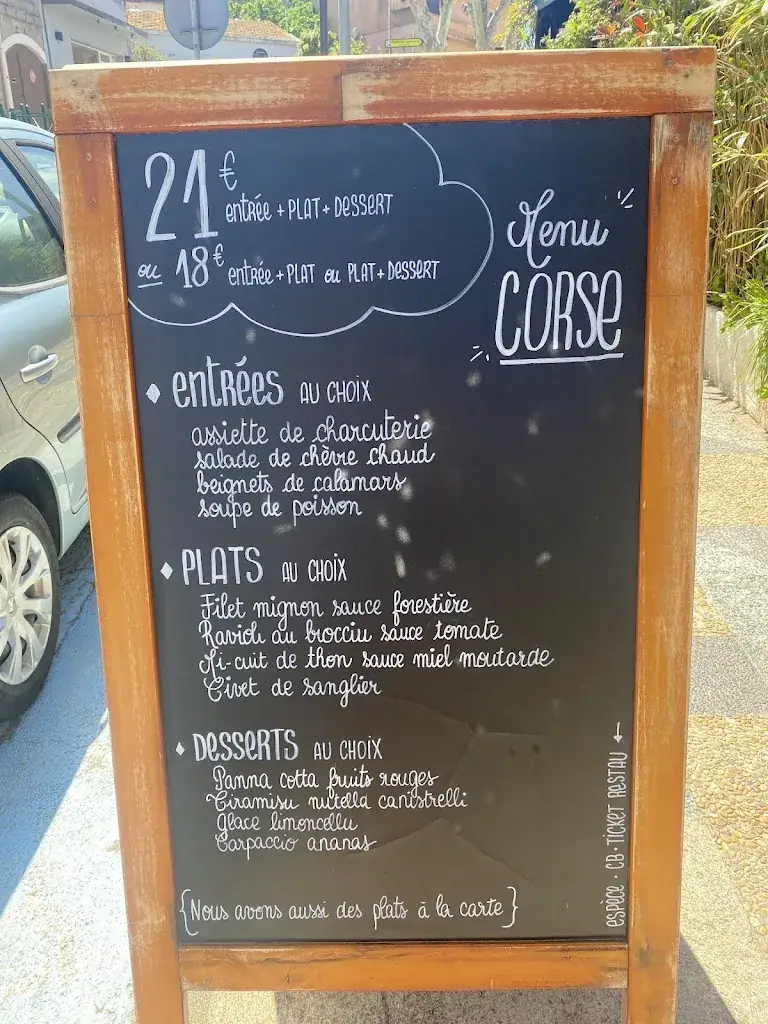 21€ entrée + PLAT + DESSERT
ou 18€ entrée + PLAT ou PLAT + DESSERT
Menu
CORSE
entRées AU CHOIX
assiette de charcuterie
salade de chèvre chaud
beignets de calamars
soupe de poisson
PLATS AU CHOIX
Filet mignon sauce forestière
Ravioli au brocciu sauce tomate
Mi-cuit de thon sauce miel moutarde
Civet de sanglier
DESSERTS AU CHOIX
Panna cotta fruits rouges
Tiramisu nutella canistrelli
Glace limoncellu
Carpaccio ananas
{Nous avons aussi des plats à la carte}
espèce · CB · TICKET RESTAU